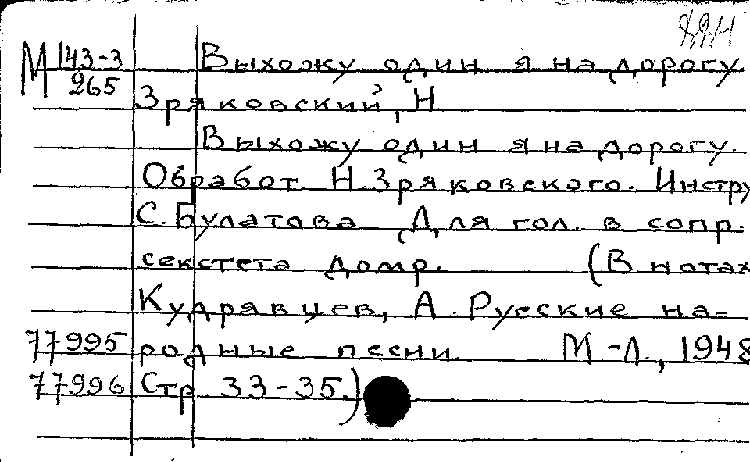 М 143-3 Выхожу один я на дорогу
265
Зряковский, Н
Выхожу один я на дорогу.
Обработ. Н. Зряковского. Инстру
С. Булатова Для гол. в сопр.
секстета домр. (В нотах
Кудрявцев, А. Русские на-
77995 родные песни М-Л., 1948
77996 Стр 33-35.)